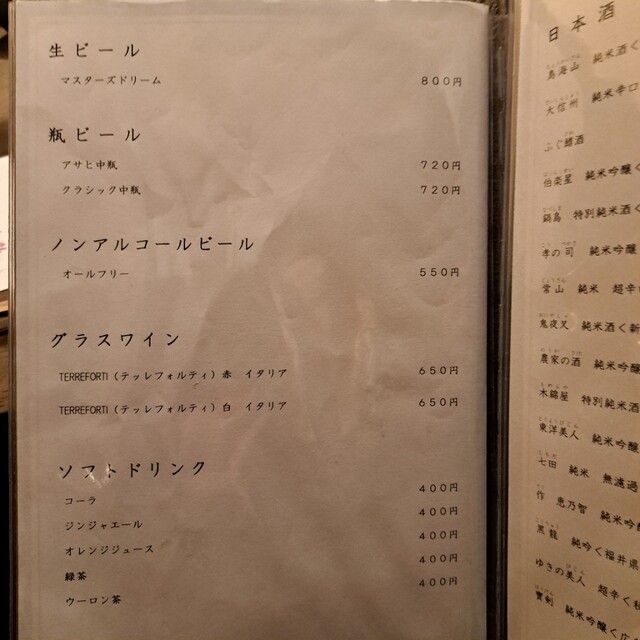 生ビール
マスターズドリーム 800円
瓶ビール
アサヒ中瓶 720円
クラシック中瓶 720円
ノンアルコールビール
オールフリー 550円
グラスワイン
TERREFORTI（テッレフォルティ）赤 イタリア 650円
TERREFORTI（テッレフォルティ）白 イタリア 650円
ソフトドリンク
コーラ 400円
ジンジャエール 400円
オレンジジュース 400円
緑茶 400円
ウーロン茶 400円
日本酒
鳥海山 純米酒く
大信州 純米辛口
ふぐ鰭酒
伯楽星 純米吟醸く
鍋島 特別純米酒く
孝の司 純米吟醸
常山 純米 超辛
鬼夜叉 純米酒く新
農家の酒 純米吟醸
木綿屋 特別純米酒
東洋美人 純米吟醸
七田 純米 無濾過
作 恵乃智 純米吟
黒龍 純吟く福井県
ゆきの美人 超辛く秋
寶剣 純米吟醸く広